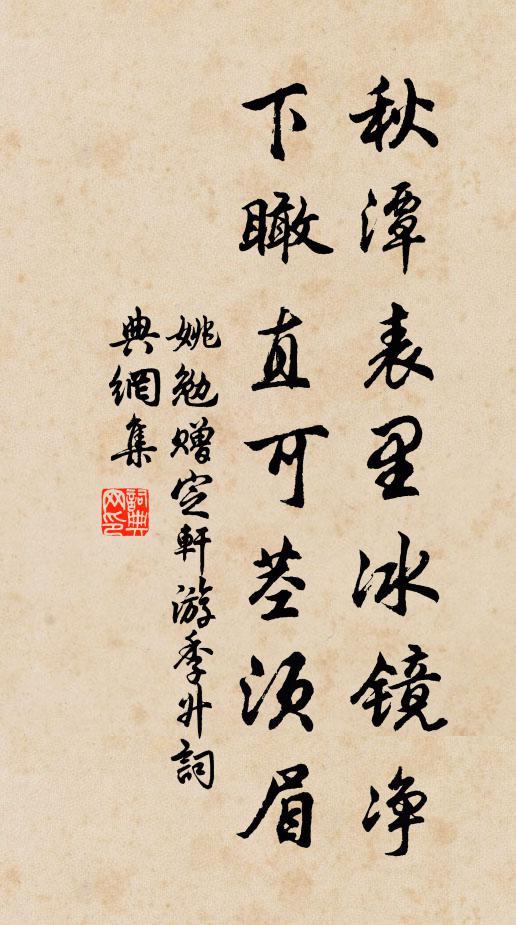 秋潭表里冰镜净
下瞰直可茎须眉
姚勉赠定軒游季升詞
典網集
詞典网印